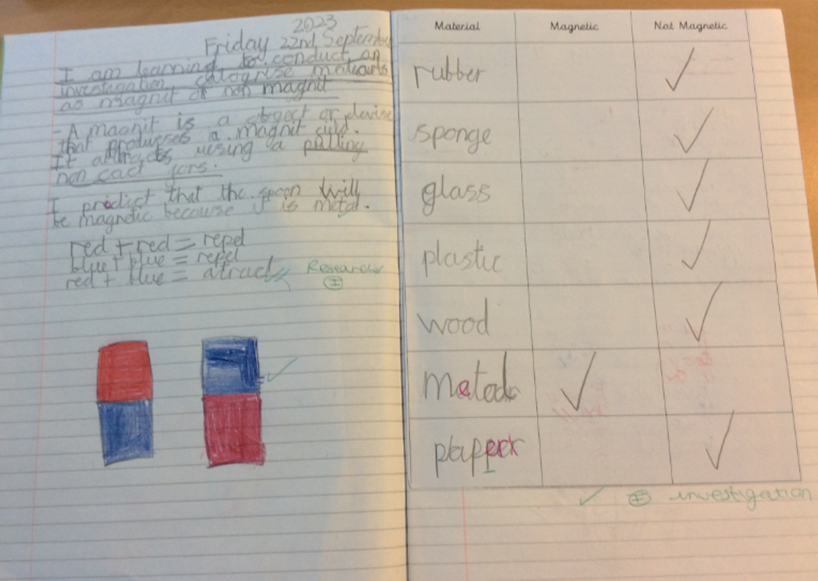 2023
Friday 22nd September
I am learning to conduct an
investigation catogrise
as magnit or non magnit
- A magnit is a object or
that a magnit
It attracts using a pulling
non
I predict that the spoon will
be magnetic because it is metal.
red + red = repel
blue + blue = repel
red + blue = atract
Research
Material Magnetic Not Magnetic
rubber ✓
sponge ✓
glass ✓
plastic ✓
wood ✓
✓
✓
✓ investigation